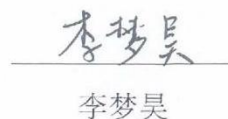 李梦昊
李梦昊